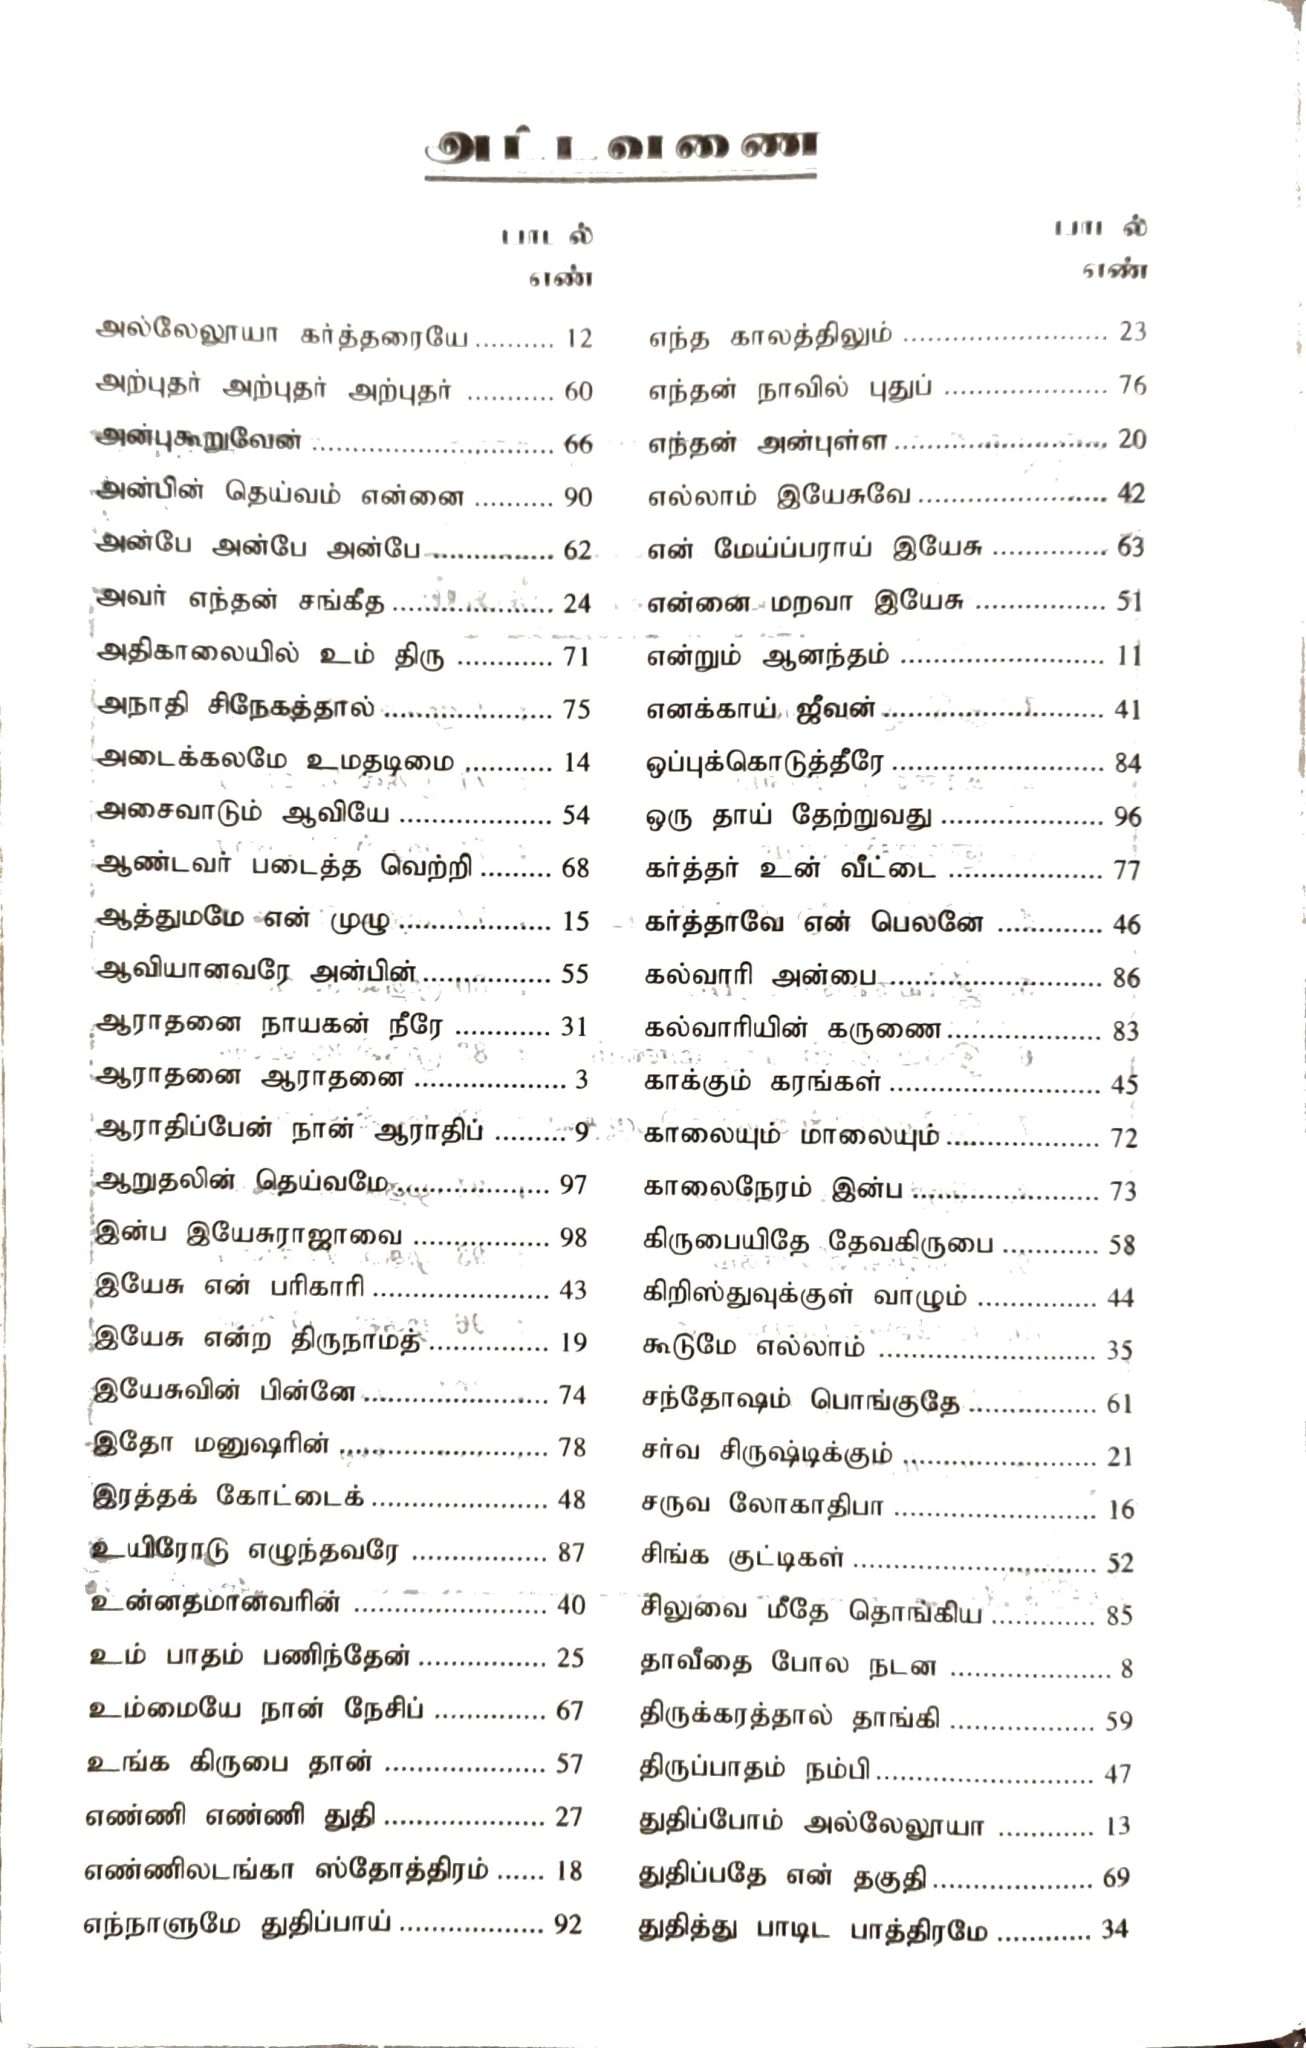 அட்டவணை
பாடல்
எண்
அல்லேலூயா கர்த்தரையே .......... 12
அற்புதர் அற்புதர் அற்புதர் ........... 60
அன்புகூறுவேன் .............................. 66
அன்பின் தெய்வம் என்னை .......... 90
அன்பே அன்பே அன்பே ............... 62
அவர் எந்தன் சங்கீத .................... 24
அதிகாலையில் உம் திரு ............ 71
அநாதி சிநேகத்தால் ..................... 75
அடைக்கலமே உமதடிமை ........... 14
அசைவாடும் ஆவியே ................... 54
ஆண்டவர் படைத்த வெற்றி ......... 68
ஆத்துமமே என் முழு ................... 15
ஆவியானவரே அன்பின் ................ 55
ஆராதனை நாயகன் நீரே ............ 31
ஆராதனை ஆராதனை ................... 3
ஆராதிப்பேன் நான் ஆராதிப் ......... 9
ஆறுதலின் தெய்வமே ................... 97
இன்ப இயேசுராஜாவை ................. 98
இயேசு என் பரிகாரி ...................... 43
இயேசு என்ற திருநாமத் ............... 19
இயேசுவின் பின்னே ....................... 74
இதோ மனுஷரின் .......................... 78
இரத்தக் கோட்டைக் ...................... 48
உயிரோடு எழுந்தவரே ................. 87
உன்னதமானவரின் ........................ 40
உம் பாதம் பணிந்தேன் ................ 25
உம்மையே நான் நேசிப் .............. 67
உங்க கிருபை தான் .................... 57
எண்ணி எண்ணி துதி .................... 27
எண்ணிலடங்கா ஸ்தோத்திரம் ...... 18
எந்நாளுமே துதிப்பாய் .................. 92
பாடல்
எண்
எந்த காலத்திலும் ......................... 23
எந்தன் நாவில் புதுப் .................... 76
எந்தன் அன்புள்ள .......................... 20
எல்லாம் இயேசுவே ....................... 42
என் மேய்ப்பராய் இயேசு .............. 63
என்னை மறவா இயேசு ................ 51
என்றும் ஆனந்தம் ......................... 11
எனக்காய் ஜீவன் ........................... 41
ஒப்புக்கொடுத்தீரே .......................... 84
ஒரு தாய் தேற்றுவது .................... 96
கர்த்தர் உன் வீட்டை ................... 77
கர்த்தாவே என் பெலனே ............. 46
கல்வாரி அன்பை .......................... 86
கல்வாரியின் கருணை ................... 83
காக்கும் கரங்கள் .......................... 45
காலையும் மாலையும் ................... 72
காலைநேரம் இன்ப ....................... 73
கிருபையிதே தேவகிருபை ............ 58
கிறிஸ்துவுக்குள் வாழும் ............... 44
கூடுமே எல்லாம் ........................... 35
சந்தோஷம் பொங்குதே ................ 61
சர்வ சிருஷ்டிக்கும் ....................... 21
சருவ லோகாதிபா ......................... 16
சிங்க குட்டிகள் .............................. 52
சிலுவை மீதே தொங்கிய ............. 85
தாவீதை போல நடன .................... 8
திருக்கரத்தால் தாங்கி .................. 59
திருப்பாதம் நம்பி ........................... 47
துதிப்போம் அல்லேலூயா ............ 13
துதிப்பதே என் தகுதி .................... 69
துதித்து பாடிட பாத்திரமே ............ 34